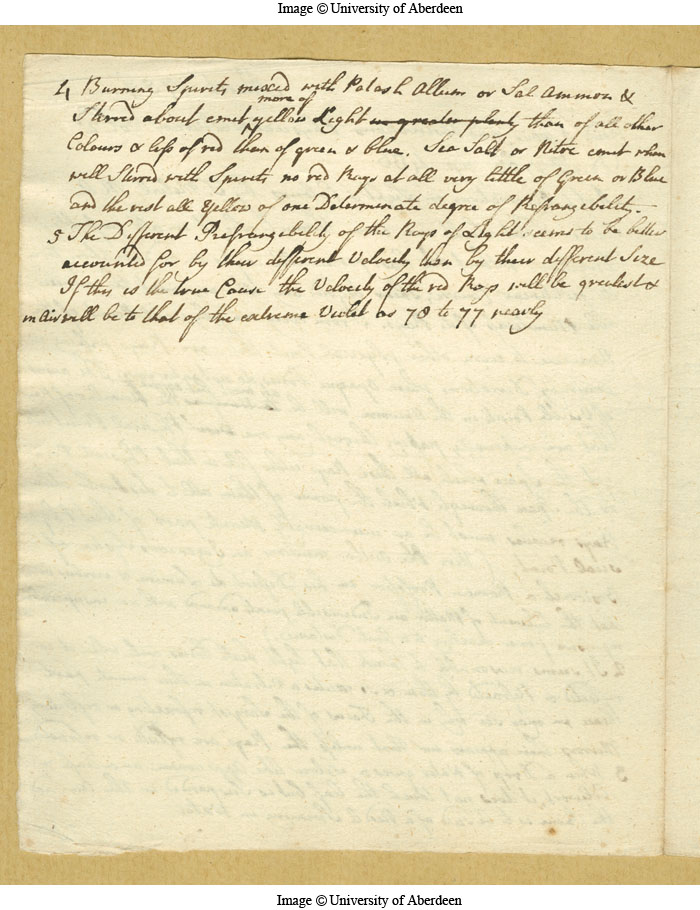 Image © University of Aberdeen
4 Burning Spirits mixed with Potash Allum or Sal Ammon &
Stirred about emit more of yellow Light in greater plenty than of all other
Colours & less of red than of green & blue. Sea Salt or Nitre emit when
well Stirred with Spirits no red Rays at all very little of Green or Blue
and the rest all yellow of one Determinate degree of Refrangebelity.
5 The Different Refrangebility of the Rays of Light seems to be better
accounted for by their different Velocity then by their different Size
If this is the true Cause the Velocity of the red Rays will be greatest &
in Air will be to that of the extreme Violet as 78 to 77 nearly
Image © University of Aberdeen